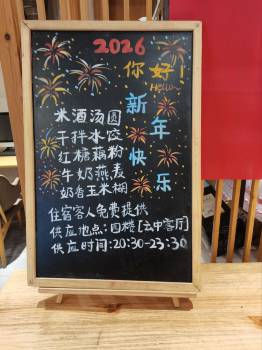 2026
你好！
Hello~
新年快乐
米酒汤圆
干拌水饺
红糖藕粉
牛奶燕麦
奶香玉米糊
住宿客人免费提供
供应地点：四楼［云中客厅］
供应时间：20:30-23:30